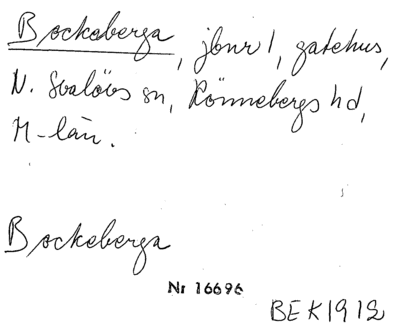 Bockeberga, jbnr 1, gatehus,
N. Svalövs sn, Rönnebergs hd,
M-län.
Bockeberga
Nr 16696
BEK1912